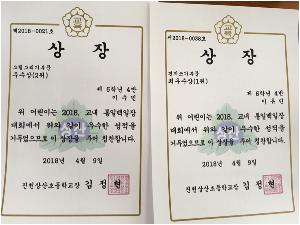 제2018-0021호
상 장
그림그리기부문
우수상(2위)
제 5학년 4반
이 수 민
위 어린이는 2018. 교내 통일백일장
대회에서 위와 같이 우수한 성적을
거두었으므로 이 상장을 주어 칭찬합니다.
2018년 4월 9일
진헌상산초등학교장 김 정 현
제2018-0038호
상 장
편지쓰기부문
최우수상(1위)
제 6학년 4반
이 유 민
위 어린이는 2018. 교내 통일백일장
대회에서 위와 같이 우수한 성적을
거두었으므로 이 상장을 주어 칭찬합니다.
2018년 4월 9일
진헌상산초등학교장 김 정 현